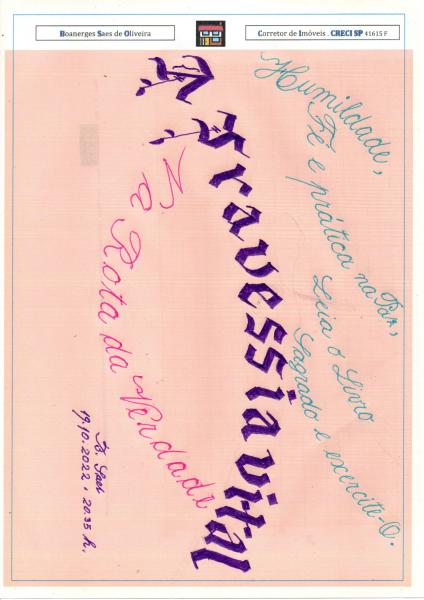 Boanerges Saes de Oliveira
Corretor de Imóveis . CRECI SP 41615 F
Humildade,
Fé e prática na Paz,
Leia o Livro
Sagrado e exercite-O.
A Travessia vital
Na Rota da Verdade
B. Saes
19.10.2022 . 20.35 h.